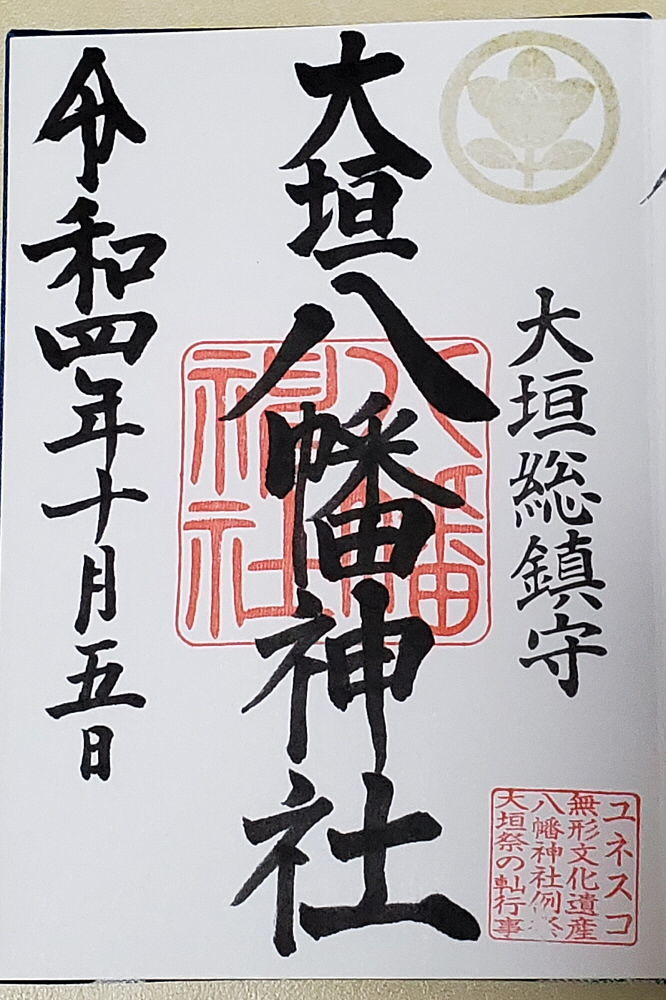 大垣総鎮守
ユネスコ
無形文化遺産
八幡神社例祭
大垣祭の軕行事
大垣八幡神社
八幡
神社
令和四年十月五日